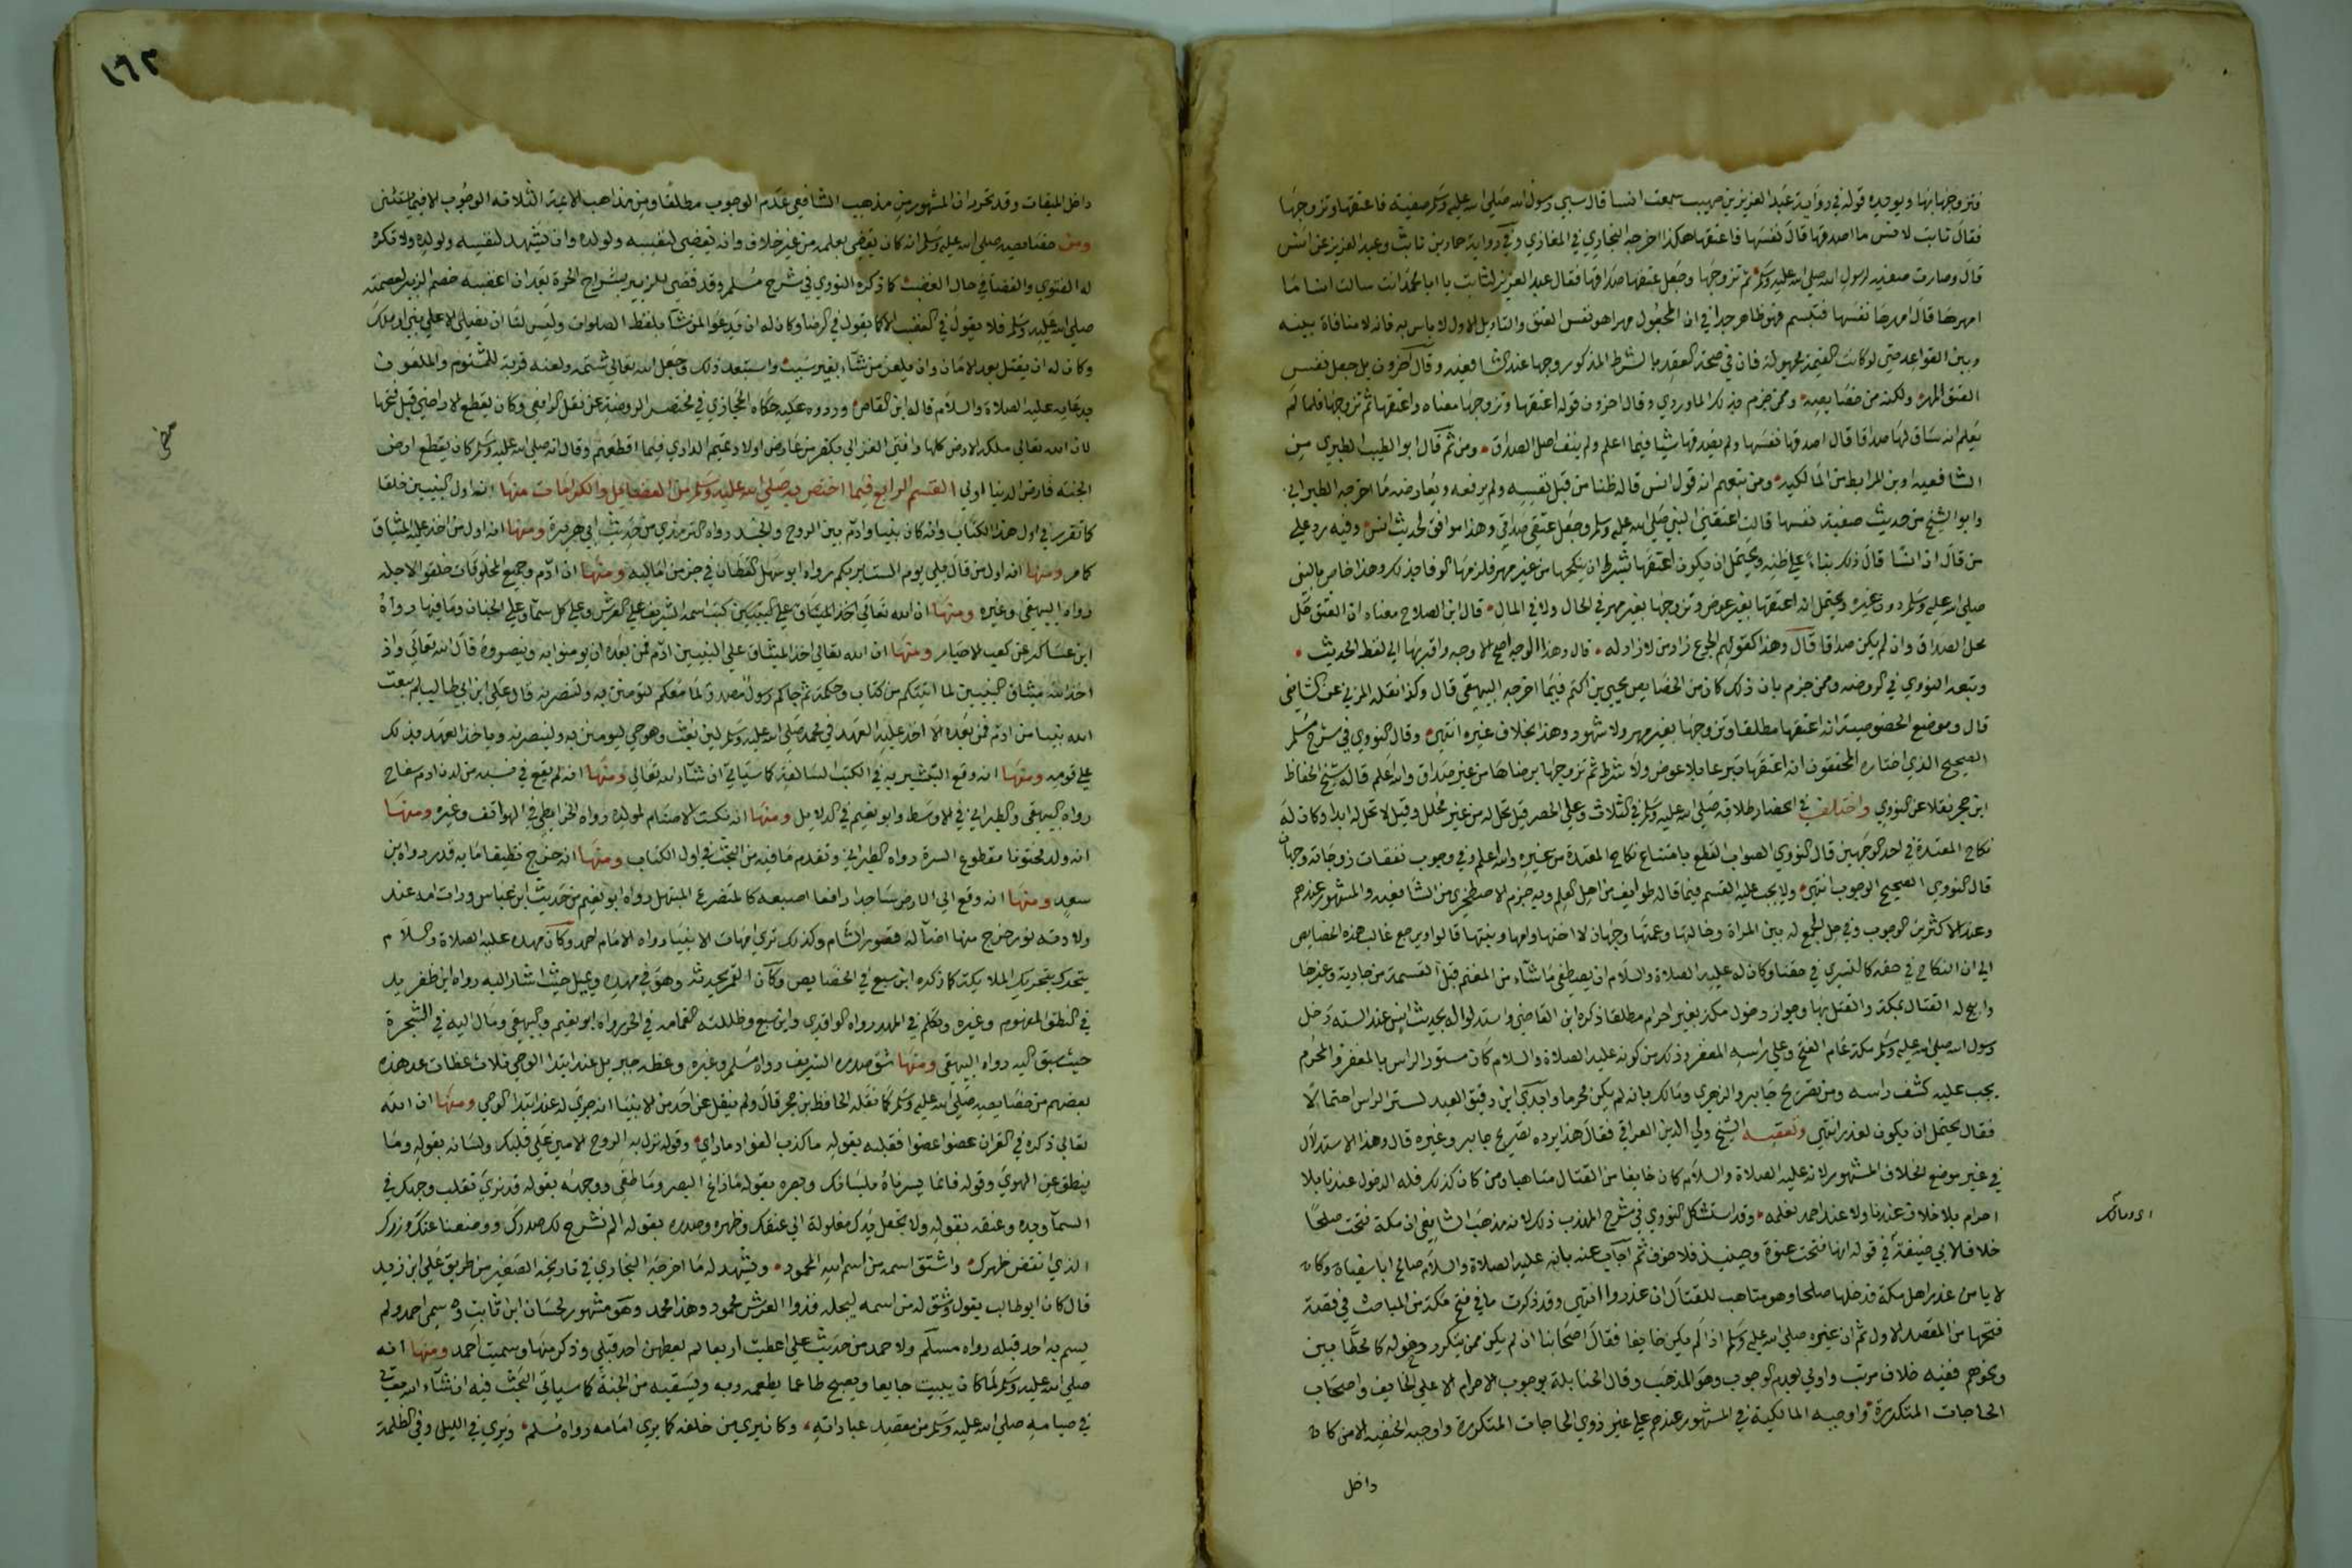 فتزوجها بها ويويده قوله في رواية عبد العزيز بن صهيب سمعت انسا قال سبي رسول الله صلى الله عليه وسلم صفية فاعتقها وتزوجها
فقال ثابت لانس ما اصدقها قال نفسها فاعتقها هكذا اخرجه البخاري في المغازي وفي رواية حماد بن ثابت وعبد العزيز عن انس
قال وصارت صفية لرسول الله صلى الله عليه وسلم ثم تزوجها وجعل عتقها صداقها فقال عبد العزيز لثابت يا ابا محمد انت سالت انسا ما
امهرها قال امهرها نفسها فتبسم فهو ظاهر جدا في ان المجعول مهرا هو نفس العتق والتاويل الاول لا باس به فانه لا منافاة بينه
وبين القواعد حتى لو كانت القيمة مجهولة فان في صحة العقد بالشرط المذكور وجها عند الشافعية وقال آخرون بل جعل نفس
العتق المهر ولكنه من خصايصه وممن جزم بذلك الماوردي وقال اخرون قوله اعتقها وتزوجها معناه واعتقها ثم تزوجها فلما لم
يعلم انه ساق لها صداقا قال اصدقها نفسها ولم يصدقها شيا فيما اعلم ولم ينف اصل الصداق ومن ثم قال ابو الطيب الطبري من
الشافعية وابن المرابط من المالكية ومن تبعهم انه قول انس قاله ظنا من قبل نفسه ولم يرفعه ويعارضه ما اخرجه الطبراني
وابو الشيخ من حديث صفية نفسها قالت اعتقني النبي صلى الله عليه وسلم وجعل عتقي صداقي وهذا موافق لحديث انس وفيه رد علي
من قال ان انسا قال ذلك بناءً علي ظنه ويحتمل ان يكون اعتقها بشرط ان ينكحها من غير مهر فلزمها الوفا بذلك وهذا خاص بالنبي
صلى الله عليه وسلم دون غيره ويحتمل انه اعتقها بغير عوض وتزوجها بغير مهر في الحال ولا في المال قال ابن الصلاح معناه ان العتق حل
محل الصداق وان لم يكن صداقا قال وهذا كقولهم الجوع زاد من لا زاد له قال وهذا الوجه اصح الاوجه واقربها الي لفظ الحديث
وتبعه النووي في الروضه وممن جزم بان ذلك كان من الخصايص يحيي بن اكثم فيما اخرجه البيهقي قال وكذا نقله المزني عن الشافعي
قال وموضع الخصوصية انه اعتقها مطلقا وتزوجها بغير مهر ولا شهود وهذا بخلاف غيره انتهي وقال النووي في شرح مسلم
الصحيح الذي اختاره المحققون انه اعتقها تبرعا بلا عوض ولا شرط ثم تزوجها برضاها من غير صداق والله اعلم قاله شيخ الحفاظ
ابن حجر نقلا عن النووي واختلف في انحصار طلاقه صلى الله عليه وسلم في الثلاث وعلى الحصر قيل تحل له من غير محلل وقيل لا تحل له ابدا وكان له
نكاح المعتدة في احد الوجهين قال النووي الصواب القطع بامتناع نكاح المعتدة من غيره والله اعلم وفي وجوب نفقات زوجاته وجهان
قال النووي الصحيح الوجوب انتهي ولا يجب عليه القسم فيما قاله طوايف من اهل العلم وبه جزم الاصطخري من الشافعية والمشهور عندهم
وعند الاكثرين الوجوب وفي حل الجمع له بين المراة وخالتها وعمتها وجهان لا اختها وامها وبنتها قالوا ويرجع غالب هذه الخصايص
الي ان النكاح في حقه كالتسري في حقنا وكان له عليه الصلاة والسلام ان يصطفي ما شاء من المغنم قبل القسمة من جارية وغيرها
وابيح له القتال بمكة والقتل بها وجواز دخول مكة بغير احرام مطلقا ذكره ابن القاضي واستدلوا له بحديث انس عند الستة دخل
رسول الله صلى الله عليه وسلم مكة عام الفتح وعلى راسه المغفر وذلك من كونه عليه الصلاة والسلام كان مستور الراس بالمغفر والمحرم
يجب عليه كشف راسه ومن تصريح جابر والزهري ومالك بانه لم يكن محرما وابدي ابن دقيق العيد لستر الراس احتمالا
فقال يحتمل ان يكون لعذر انتهي وتعقبه الشيخ ولي الدين العراقي فقال هذا يرده تصريح جابر وغيره قال وهذا الاستدلال
في غير موضع الخلاف المشهور لانه عليه الصلاة والسلام كان خايفا من القتال متاهبا ومن كان كذلك فله الدخول عندنا بلا
احرام بلا خلاف عندنا ولا عند احمد نعلمه وقد استشكل النووي في شرح المهذب ذلك لانه مذهب الشافعي ان مكة فتحت صلحا
خلافا لابي حنيفة في قوله انها فتحت عنوة وحينيذ فلا خوف ثم اجاب عنه بانه عليه الصلاة والسلام صالح ابا سفيان وكان
لا يامن غدر اهل مكة فدخلها صلحا وهو متاهب للقتال ان غدروا انتهي وقد ذكرت ما في فتح مكة من المباحث في قصة
فتحها من المقصد الاول ثم ان غيره صلى الله عليه وسلم اذا لم يكن خايفا فقال اصحابنا ان لم يكن ممن يتكرر دخوله كالحطابين
ونحوهم ففيه خلاف مرتب واولي بعدم الوجوب وهو المذهب وقال الحنابلة بوجوب الاحرام الا على الخايف واصحاب
الحاجات المتكررة واوجبه المالكية في المشهور عندهم علي غير ذوي الحاجات المتكررة واوجبه الحنفية الا من كان
داخل
١٦٢
داخل الميقات وقد تحرر ان المشهور من مذهب الشافعي عدم الوجوب مطلقا ومن مذاهب الائمة الثلاثة الوجوب الا فيما يستثني
ومن خصايصه صلى الله عليه وسلم انه كان يقضي بعلمه من غير خلاف وانه يقضي لنفسه ولولده وان يشهد لنفسه ولولده ولا تكره
له الفتوي والقضا في حال الغضب كما ذكره النووي في شرح مسلم وقد قضي للزبير بشراج الحرة بعد ان اغضبه خصم الزبير لعصمته
صلى الله عليه وسلم فلا يقول في الغضب الا كما يقول في الرضا وكان له ان يدعو لمن شا بلفظ الصلوات وليس لنا ان نصلي الا علي نبي او ملك
وكان له ان يقتل بعد الامان وان يلعن من شاء بغير سبب واستبعد ذلك وجعل الله تعالي شتمه ولعنه قربة للمشتوم والملعون
بدعايه عليه الصلاة والسلام قاله ابن القاص وردوه عليه حكاه الحجازي في مختصر الروضة عن نقل الرافعي وكان يقطع الاراضي قبل فتحها
لان الله تعالي ملكه الارض كلها وافتي الغزالي بكفر من عارض اولاد تميم الداري فيما اقطعهم وقال انه صلى الله عليه وسلم كان يقطع ارض
الجنة فارض الدنيا اولي القسم الرابع فيما اختص به صلى الله عليه وسلم من الفضايل والكرامات منها انه اول النبيين خلقا
كما تقرر في اول هذا الكتاب وانه كان نبيا وادم بين الروح والجسد رواه الترمذي من حديث ابي هريرة ومنها انه اول من اخذ عليه الميثاق
كما مر ومنها انه اول من قال بلي يوم الست بربكم رواه ابو سهل القطان في جزء من اماليه ومنها ان ادم وجميع المخلوقات خلقوا لاجله
رواه البيهقي وغيره ومنها ان الله تعالي اخذ الميثاق علي النبيين كتب اسمه الشريف علي العرش وعلي كل سماء وعلي الجنان وما فيها رواه
ابن عساكر عن كعب الاحبار ومنها ان الله تعالي اخذ الميثاق علي النبيين ادم فمن بعده ان يومنوا به وينصروه قال الله تعالي واذ
اخذ الله ميثاق النبيين لما اتيتكم من كتاب وحكمة ثم جاكم رسول مصدق لما معكم لتومنن به ولتنصرنه قال علي ابن ابي طالب لم يبعث
الله نبيا من ادم فمن بعده الا اخذ عليه العهد في محمد صلى الله عليه وسلم لين بعث وهو حي ليومنن به ولينصرنه وياخذ العهد بذلك
علي قومه ومنها انه وقع التبشير به في الكتب السالفة كما سياتي ان شاء الله تعالي ومنها انه لم يقع في نسبه من لدن ادم سفاح
رواه البيهقي والطبراني في الاوسط وابو نعيم في الدلايل ومنها انه نكست الاصنام لمولده رواه الخرايطي في الهواتف وغيره ومنها
انه ولد مختونا مقطوع السرة رواه الطبراني وتقدم ما فيه من البحث في اول الكتاب ومنها انه خرج نظيفا ما به قذر رواه ابن
سعد ومنها انه وقع الي الارض ساجدا رافعا اصبعه كالمتضرع المبتهل رواه ابو نعيم من حديث ابن عباس ورات امه عند
ولادته نور خرج منها اضاء له قصور الشام وكذلك تري امهات الانبيا رواه الامام احمد وكان مهده عليه الصلاة والسلام
يتحرك بتحريك الملايكة كما ذكره ابن سبع في الخصايص وكان القمر يحدثه وهو في مهده ويميل حيث اشار اليه رواه ابن طغر بك
في النطق المفهوم وغيره وتكلم في المهد رواه الواقدي وابن سبع وظللته الغمامه في الحر رواه ابو نعيم والبيهقي ومال اليه في الشجرة
حيث سبق اليه رواه البيهقي ومنها شق صدره الشريف رواه مسلم وغيره وغطه جبريل عند ابتدا الوحي ثلاث غطات عد هذه
بعضهم من خصايصه صلى الله عليه وسلم كما نقله الحافظ بن حجر قال ولم ينقل عن احد من الانبيا انه جري له عند ابتدا الوحي ومنها ان الله
تعالي ذكره في القران عضوا عضوا فقلبه بقوله ما كذب الفواد ما راي وقوله نزل به الروح الامين علي قلبك ولسانه بقوله وما
ينطق عن الهوي وقوله فانما يسرناه بلسانك وبصره بقوله ما زاغ البصر وما طغي ووجهه بقوله قد نري تقلب وجهك في
السماء ويده وعنقه بقوله ولا تجعل يدك مغلولة الي عنقك وظهره وصدره بقوله الم نشرح لك صدرك ووضعنا عنك وزرك
الذي انقض ظهرك واشتق اسمه من اسم الله المحمود ويشهد له ما اخرجه البخاري في تاريخه الصغير من طريق علي ابن زيد
قال كان ابو طالب يقول وشق له من اسمه ليجله فذوا العرش محمود وهذا محمد وهو مشهور لحسان ابن ثابت وسمي احمد ولم
يسم به احد قبله رواه مسلم ولاحمد من حديث علي اعطيت اربعا لم يعطهن احد قبلي وذكر منها وسميت احمد ومنها انه
صلى الله عليه وسلم لما كان يبيت جايعا ويصبح طاعما يطعمه ربه ويسقيه من الجنة كما سياتي البحث فيه ان شاء الله تعالي
في صيامه صلى الله عليه وسلم من مقصد عباداته وكان يري من خلفه كما يري امامه رواه مسلم ويري في الليل وفي الظلمة